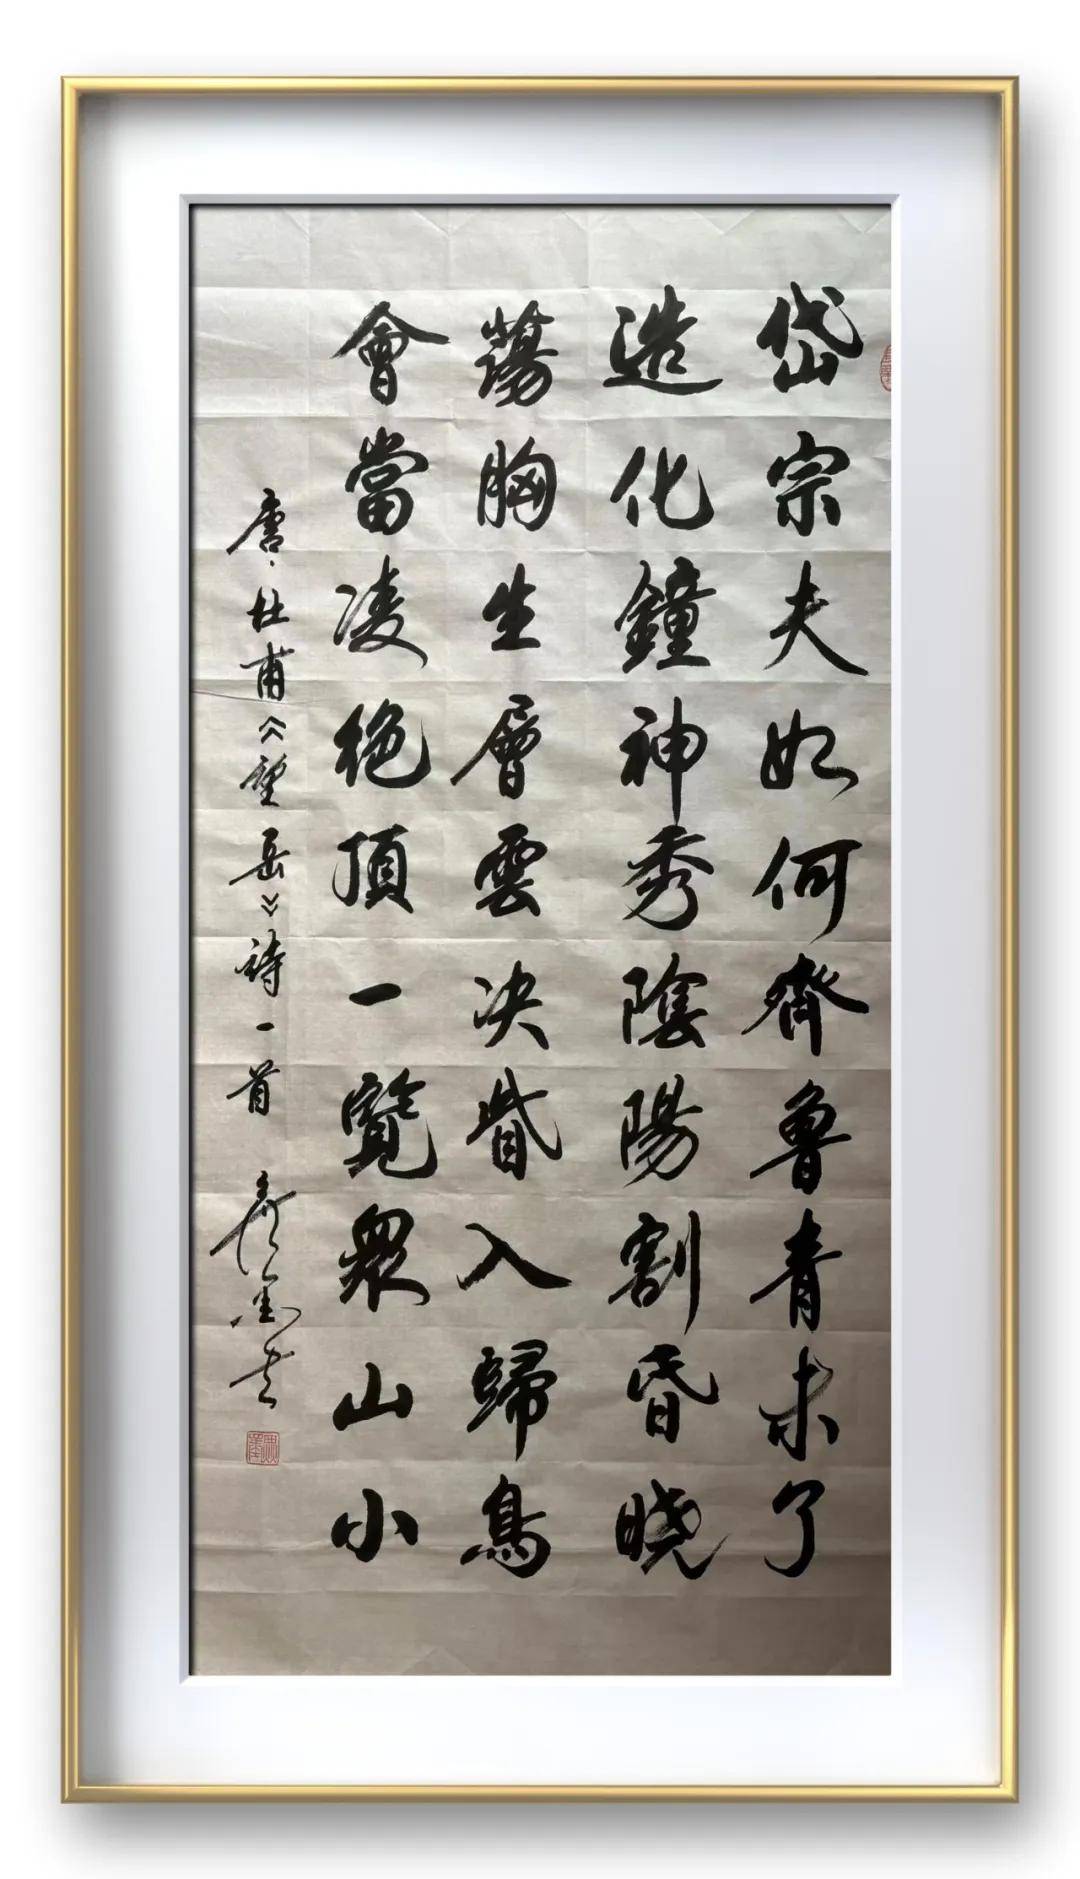 岱宗夫如何齊魯青未了
造化鐘神秀陰陽割昏曉
蕩胸生層雲决眥入歸鳥
會當凌絶頂一覽眾山小
唐·杜甫《望岳》詩一首